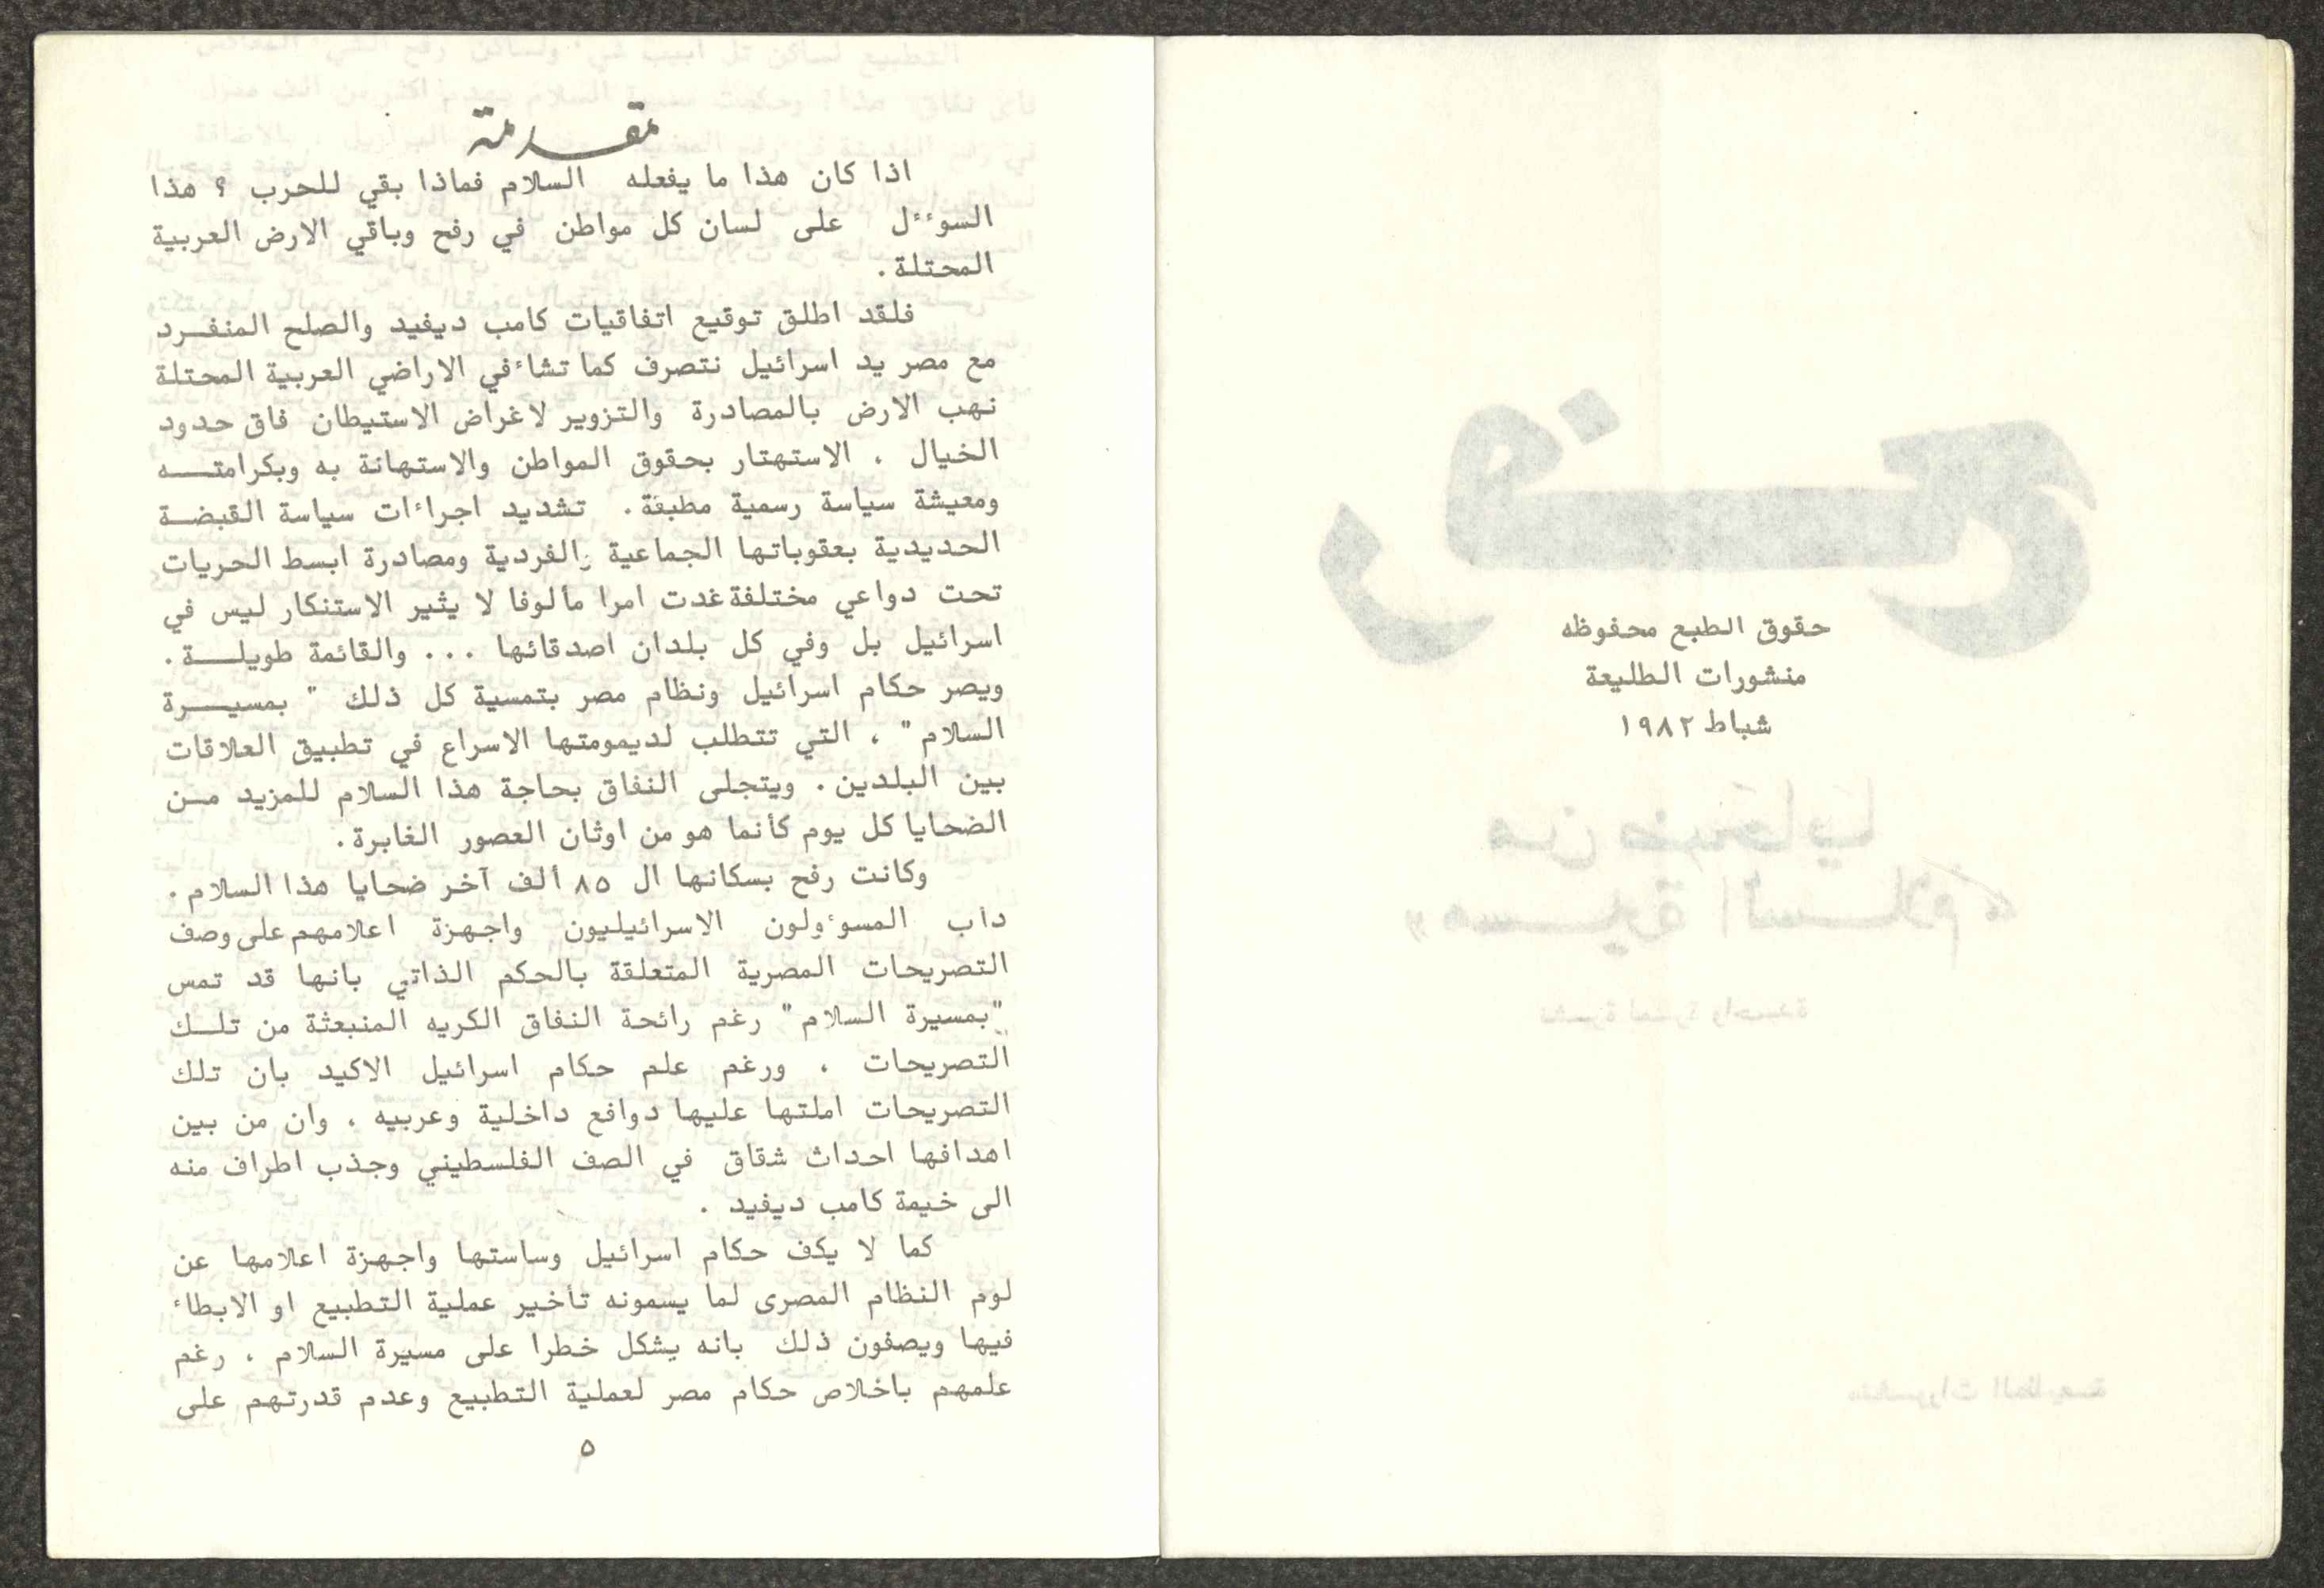 حقوق الطبع محفوظه
منشورات الطليعة
شباط ١٩٨٢
مقدمة
اذا كان هذا ما يفعله السلام فماذا بقي للحرب ؟ هذا
السوءل على لسان كل مواطن في رفح وباقي الارض العربية
المحتلة .
فلقد اطلق توقيع اتفاقيات كامب ديفيد والصلح المنفرد
مع مصر يد اسرائيل نتصرف كما تشاء في الاراضي العربية المحتلة
نهب الارض بالمصادرة والتزوير لاغراض الاستيطان فاق حدود
الخيال ، الاستهتار بحقوق المواطن والاستهانة به وبكرامته
ومعيشة سياسة رسمية مطبقة . تشديد اجراءات سياسة القبضة
الحديدية بعقوباتها الجماعية والفردية ومصادرة ابسط الحريات
تحت دواعي مختلفة غدت امرا مألوفا لا يثير الاستنكار ليس في
اسرائيل بل وفي كل بلدان اصدقائها ... والقائمة طويلة .
ويصر حكام اسرائيل ونظام مصر بتمسية كل ذلك " بمسيرة
السلام " ، التي تتطلب لديمومتها الاسراع في تطبيق العلاقات
بين البلدين . ويتجلى النفاق بحاجة هذا السلام للمزيد من
الضحايا كل يوم كأنما هو من اوثان العصور الغابرة .
وكانت رفح بسكانها ال ٨٥ ألف آخر ضحايا هذا السلام .
دأب المسوءولون الاسرائيليون واجهزة اعلامهم على وصف
التصريحات المصرية المتعلقة بالحكم الذاتي بانها قد تمس
"بمسيرة السلام" رغم رائحة النفاق الكريه المنبعثة من تلك
التصريحات ، ورغم علم حكام اسرائيل الاكيد بان تلك
التصريحات املتها عليها دوافع داخلية وعربيه ، وان من بين
اهدافها احداث شقاق في الصف الفلسطيني وجذب اطراف منه
الى خيمة كامب ديفيد .
كما لا يكف حكام اسرائيل وساستها واجهزة اعلامها عن
لوم النظام المصرى لما يسمونه تأخير عملية التطبيع او الابطاء
فيها ويصفون ذلك بانه يشكل خطرا على مسيرة السلام ، رغم
علمهم باخلاص حكام مصر لعملية التطبيع وعدم قدرتهم على
٥